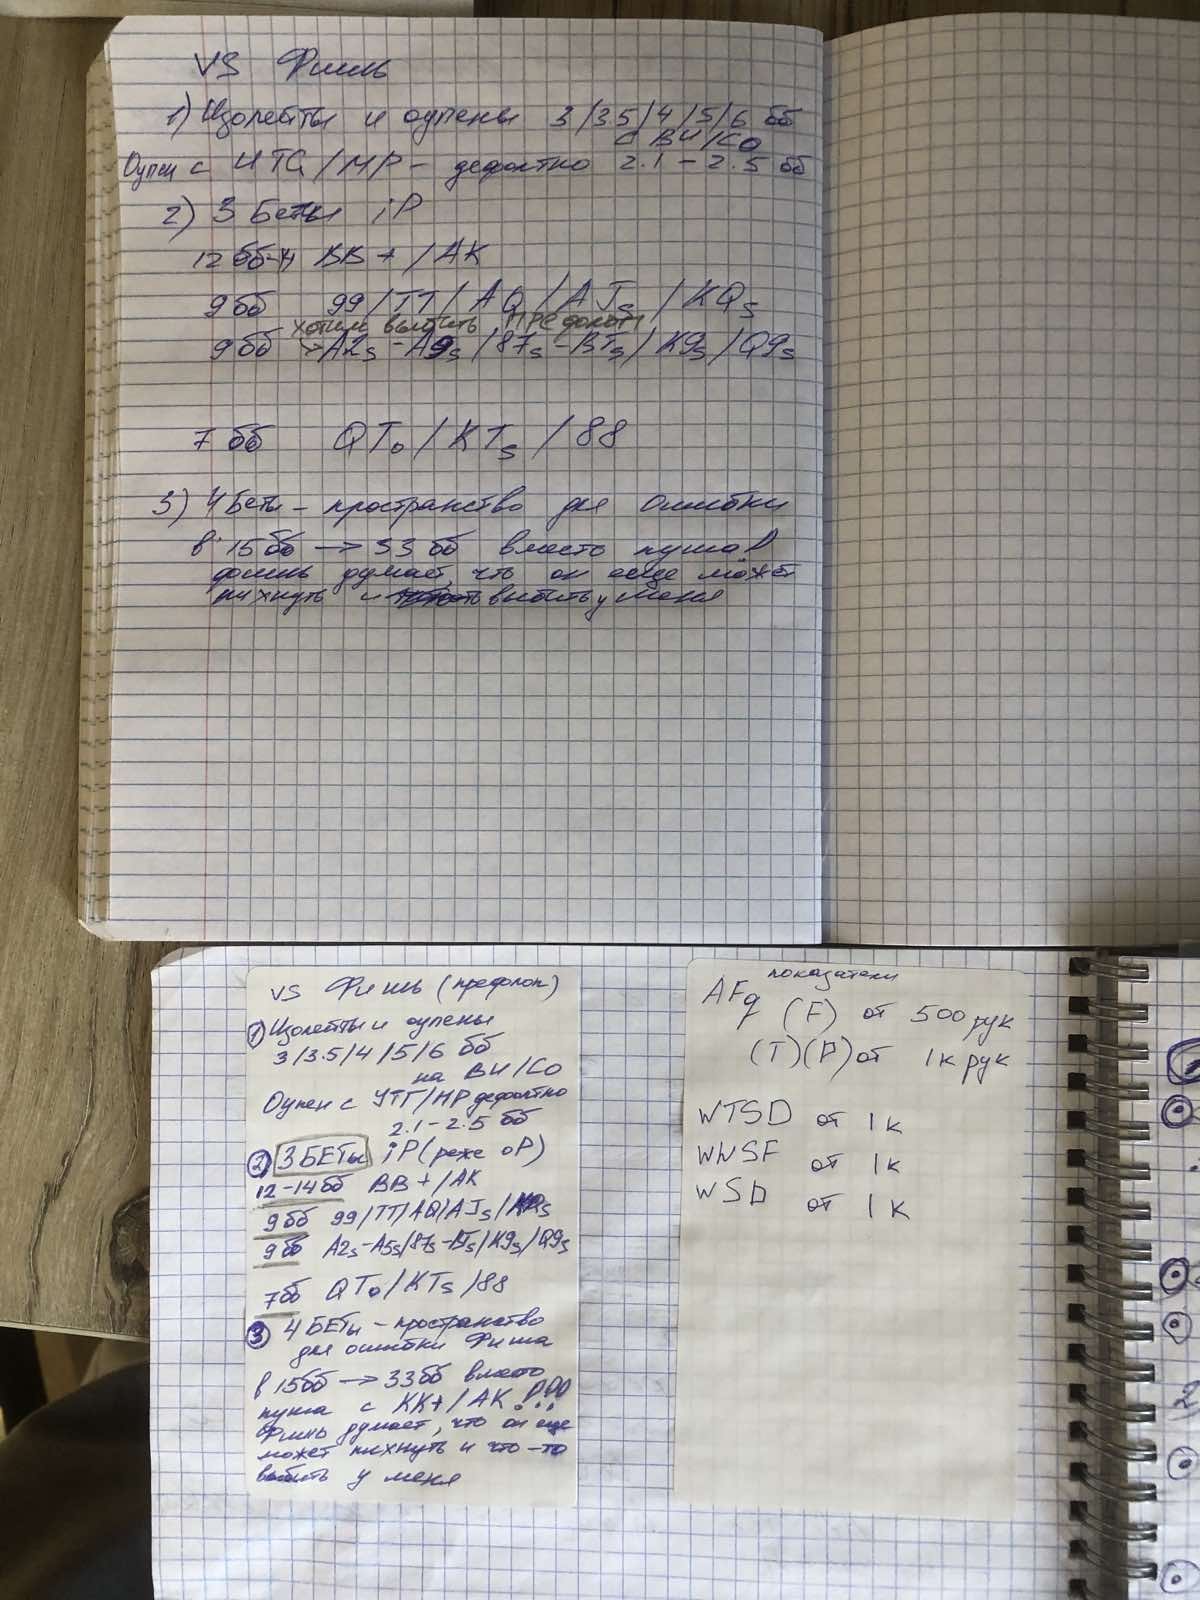 VS Фишь
1) Изолейты и оупены 3/3.5/4/5/6 бб
с BU/CO
Оупен с UTG/MP – дефолтно 2.1 – 2.5 бб
2) 3 Беты iP
12 бб-14 BB+/AK
9 бб 99/TT/AQ/AJs/KQs
хотим выбить префлоп
9 бб → A2s-A9s/87s-BTs/K9s/Q9s
7 бб QTo/KTs/88
3) 4 Беты – пространство для ошибки
в 15бб → 33бб вместо пуша!
фишь думает, что он еще может
пихнуть и выбить у меня
VS Фишь (префлоп)
1) Изолейты и оупены
3/3.5/4/5/6 бб
на BU/CO
Оупен с УТГ/MP дефолтно
2.1 – 2.5 бб
2) 3 БЕТы iP (реже oP)
12-14бб BB+/AK
9бб 99/TT/AQ/AJs/KQs
9бб A2s-A5s/87s-BTs/K9s/Q9s
7бб QTo/KTs/88
3 4 БЕТы – пространство
для ошибки Фиша
в 15бб → 33бб вместо
пуша с KK+/AK !!!
Фишь думает, что он еще
может пихнуть и что-то
выбить у меня
показатели
AFq (F) от 500 рук
(T)(P) от 1к рук
WTSD от 1к
WWSF от 1к
WSD от 1к